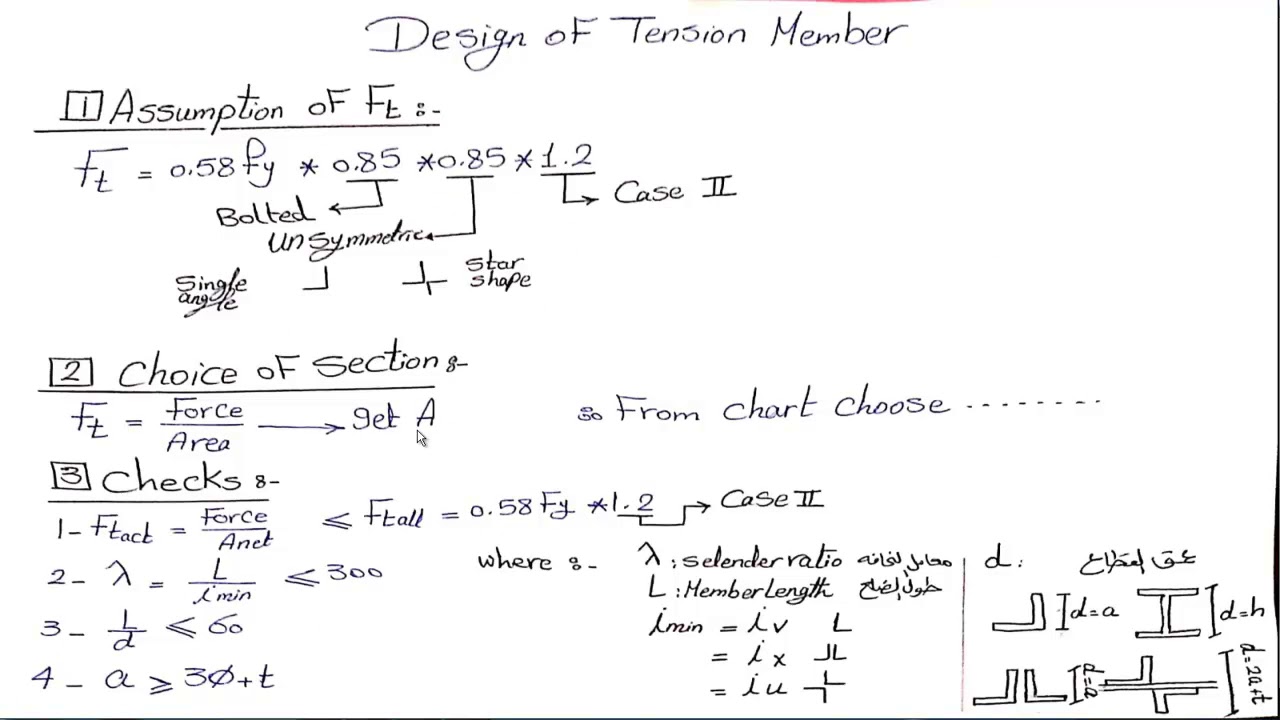 Design of Tension Member
1 Assumption of Ft :-
Ft = 0.58 Fy * 0.85 * 0.85 * 1.2
Case II
Bolted
Unsymmetric
Single angle
Star shape
2 Choice of Section :-
Ft = Force / Area → get A
so From chart choose ........
3 Checks :-
1- Ftact = Force / Anet ≤ Ftall = 0.58 Fy * 1.2 → Case II
2- λ = L / imin ≤ 300
3- L / d ≤ 60
4- a ≥ 3Ø + t
where :-
λ : selender ratio معامل النحافه
L : Member Length طول الضلع
imin = iv
= ix
= iu
d : عمق القطاع
d=a
d=h
d=a
d=2a+t